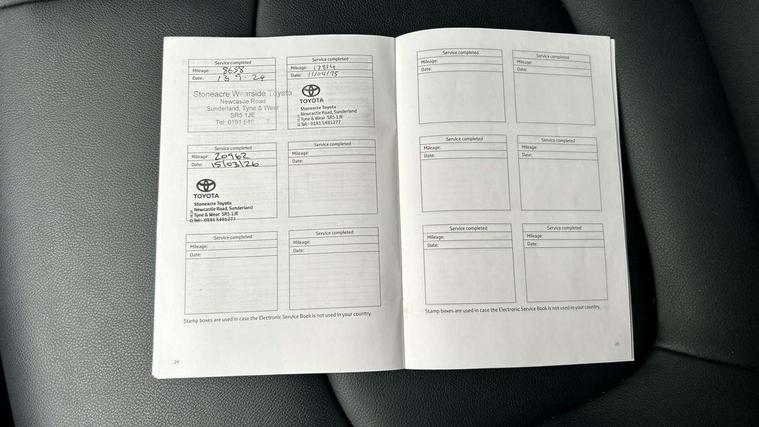 Service completed
Mileage: 8658
Date: 13 9. 24
Stoneacre Wearside Toyota
Newcastle Road
Sunderland, Tyne & Wear
SR5 1JE
Tel: 0191
Service completed
Mileage:
Date: 11/04/25
TOYOTA
Stoneacre Toyota
Newcastle Road, Sunderland
Tyne & Wear SR5 1JE
Tel:- 0191 5491277
Service completed
Mileage: 20962
Date: 15/03/26
TOYOTA
Stoneacre Toyota
Newcastle Road, Sunderland
Tyne & Wear SR5 1JE
Tel:- 0191 5491277
Service completed
Mileage:
Date:
Service completed
Mileage:
Date:
Service completed
Mileage:
Date:
Stamp boxes are used in case the Electronic Service Book is not used in your country.
24
Service completed
Mileage:
Date:
Service completed
Mileage:
Date:
Service completed
Mileage:
Date:
Service completed
Mileage:
Date:
Service completed
Mileage:
Date:
Service completed
Mileage:
Date:
Stamp boxes are used in case the Electronic Service Book is not used in your country.
25